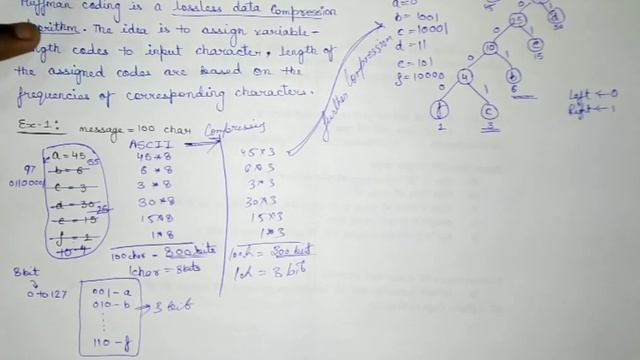 Huffman coding is a lossless data Compression
algorithm. The idea is to assign variable-
length codes to input character, length of
the assigned codes are based on the
frequencies of corresponding characters.
further compression
a=0
b=1001
c=10001
d=11
e=101
f=10000
25
30
0 1
10
e
15
0 1
4
b
6
0 1
f
c
1
3
Left ← 0
Right ← 1
Ex-1: message = 100 char Compression
ASCII
97
01100001
a = 45
b = 6
c = 3
d = 30
e = 15
f = 1
45*8
6*8
3*8
30*8
15*8
1*8
45*3
6*3
3*3
30*3
15*3
1*3
100char = 800bits
1char = 8bits
100ch = 300bit
1ch = 3 bit
8bit
0 to 127
001 - a
010 - b → 3 bit
110 - f